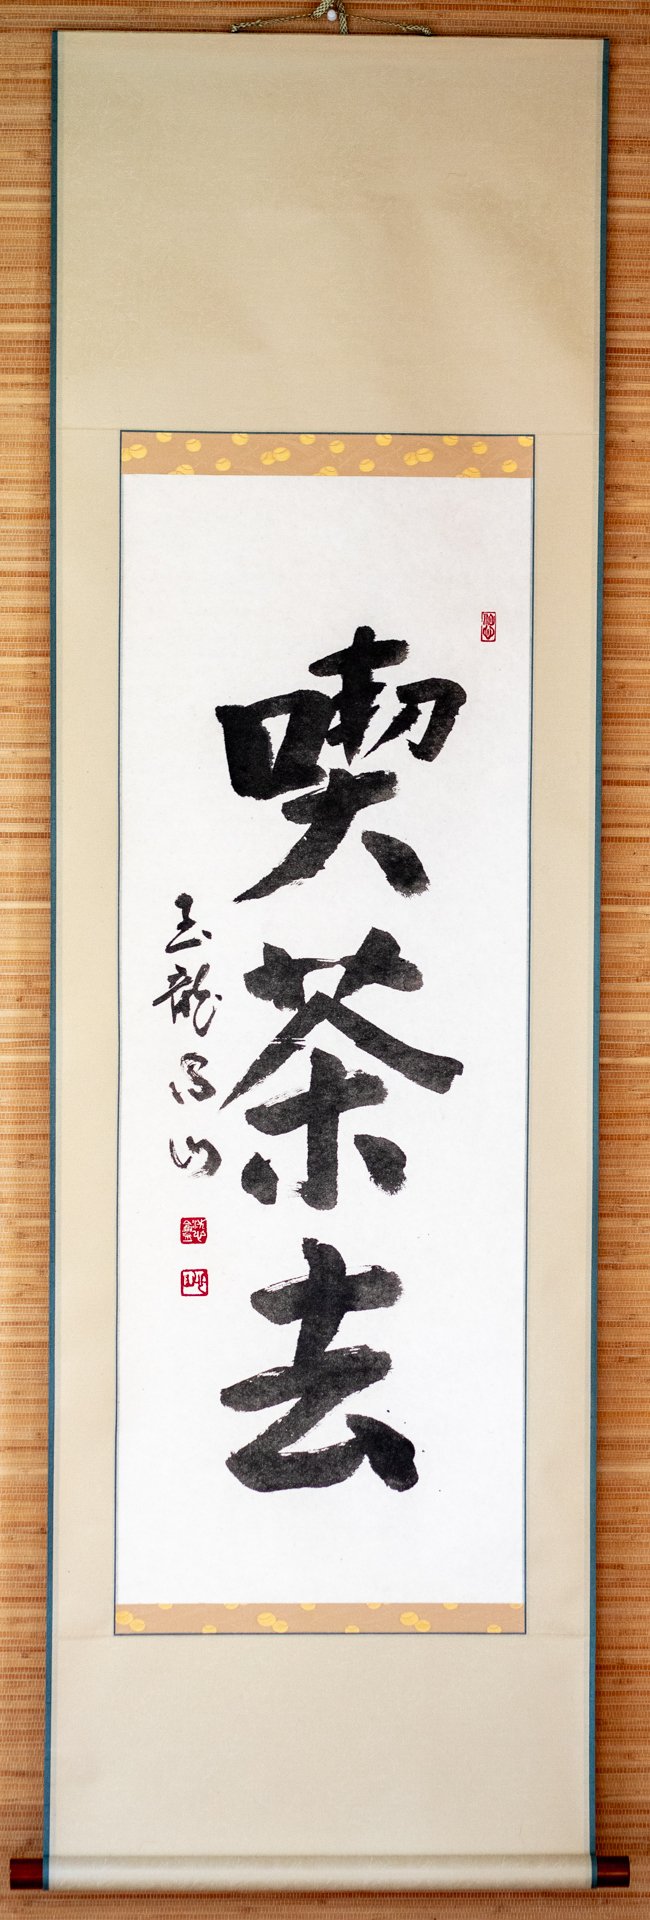 喫茶去
玉龍
山